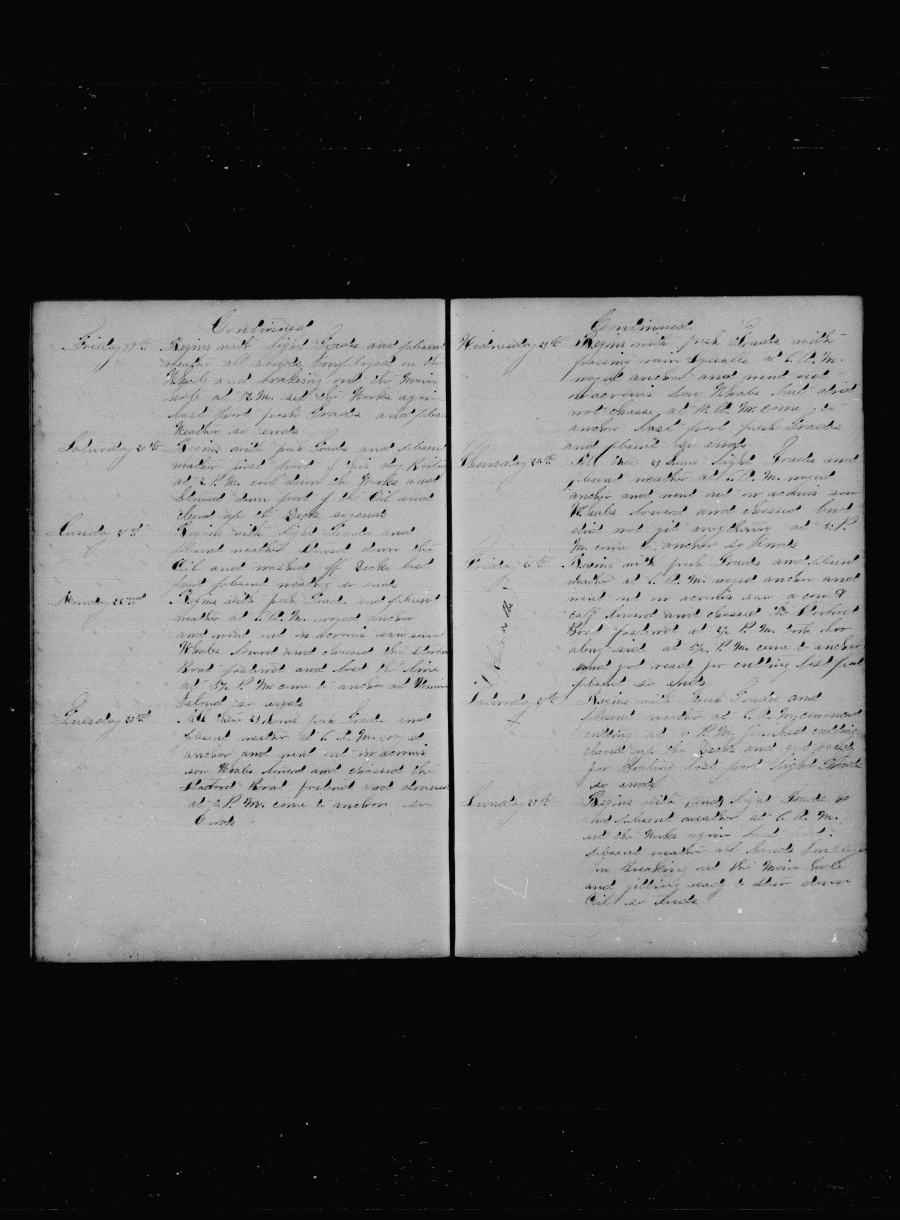 Continued
Friday 19th Begins with light Trades and plesent
weather all hands Employed on the
Whale and breaking out the Main
hole at 12 M. set the Works again
last part fresh Trades and plesent
Weather so ends
Saturday 20th Begins with fresh Trades and plesent
weather first part of this day Boiling
at 2 P.M. cool down the Works and
down part of the Oil and
clerd up the Decks
Sunday 21st Begins with light Trades and
plesent weather down the
Oil and washed off Decks last
part plesent weather so ends
Monday 22nd Begins with fresh Trades and plesent
weather at 6 A.M. wayed anchor
and went out in acrouis saw several
Whales lowerd and chassed the
Boat fastend and lost the line
at 5½ P.M. come to anchor at
Island so ends
Tuesday 23rd All these 24 hours fresh Trades and
plesent weather at 6 A.M. wayed
anchor and went out in acrouis
saw Whales lowerd and chassed the
Starbord Boat fastend and
at 2 P.M. come to anchor so
Ends
Continued
Wednesday 24th Begins with fresh Trades with
passing rain Squalls at 6 A.M.
wayed anchor and went out
in acrouis saw Whales but did
not chasse at A.M. come to
anchor last part fresh Trades
and plesent So ends
Thursday 25th All these 24 hours light Trades and
plesent weather at 6 A.M. wayed
anchor and went out in acrouis saw
Whales lowerd and chassed but
did not git anything at P.
M. come to anchor so Ends
Friday 26th Begins with fresh Trades and plesent
weather at 6 A.M. wayed anchor and
went out in acrouis saw a cow &
calf lowerd and chassed the Starbord
Boat fastend at 2½ P.M. took her
along side at 5½ P.M. come to anchor
and got ready for cutting last part
plesent so ends
Saturday 27th Begins with Fresh Trades and
plesent weather at 6 A.M. commenced
cutting at P.M. finished cutting
clerd up the Decks and got ready
for Boiling last part light Trades
so ends
Sunday 28th Begins with light Trades
and plesent weather at 6 A.M.
set the Works again last part
plesent weather all hands Employed
in Breaking out the Main hole
and gitting ready to stow down
Oil so Ends